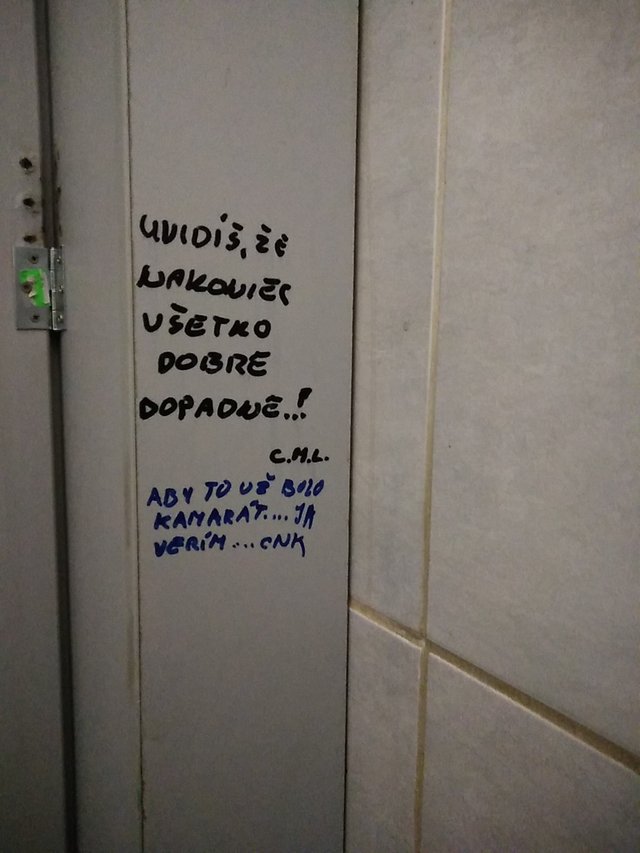 UVIDÍŠ, ŽE
NAKONIEC
VŠETKO
DOBRE
DOPADNE..!
C.M.L.
ABY TO UŽ BOLO
KAMARÁT.... JA
VERÍM... CNK